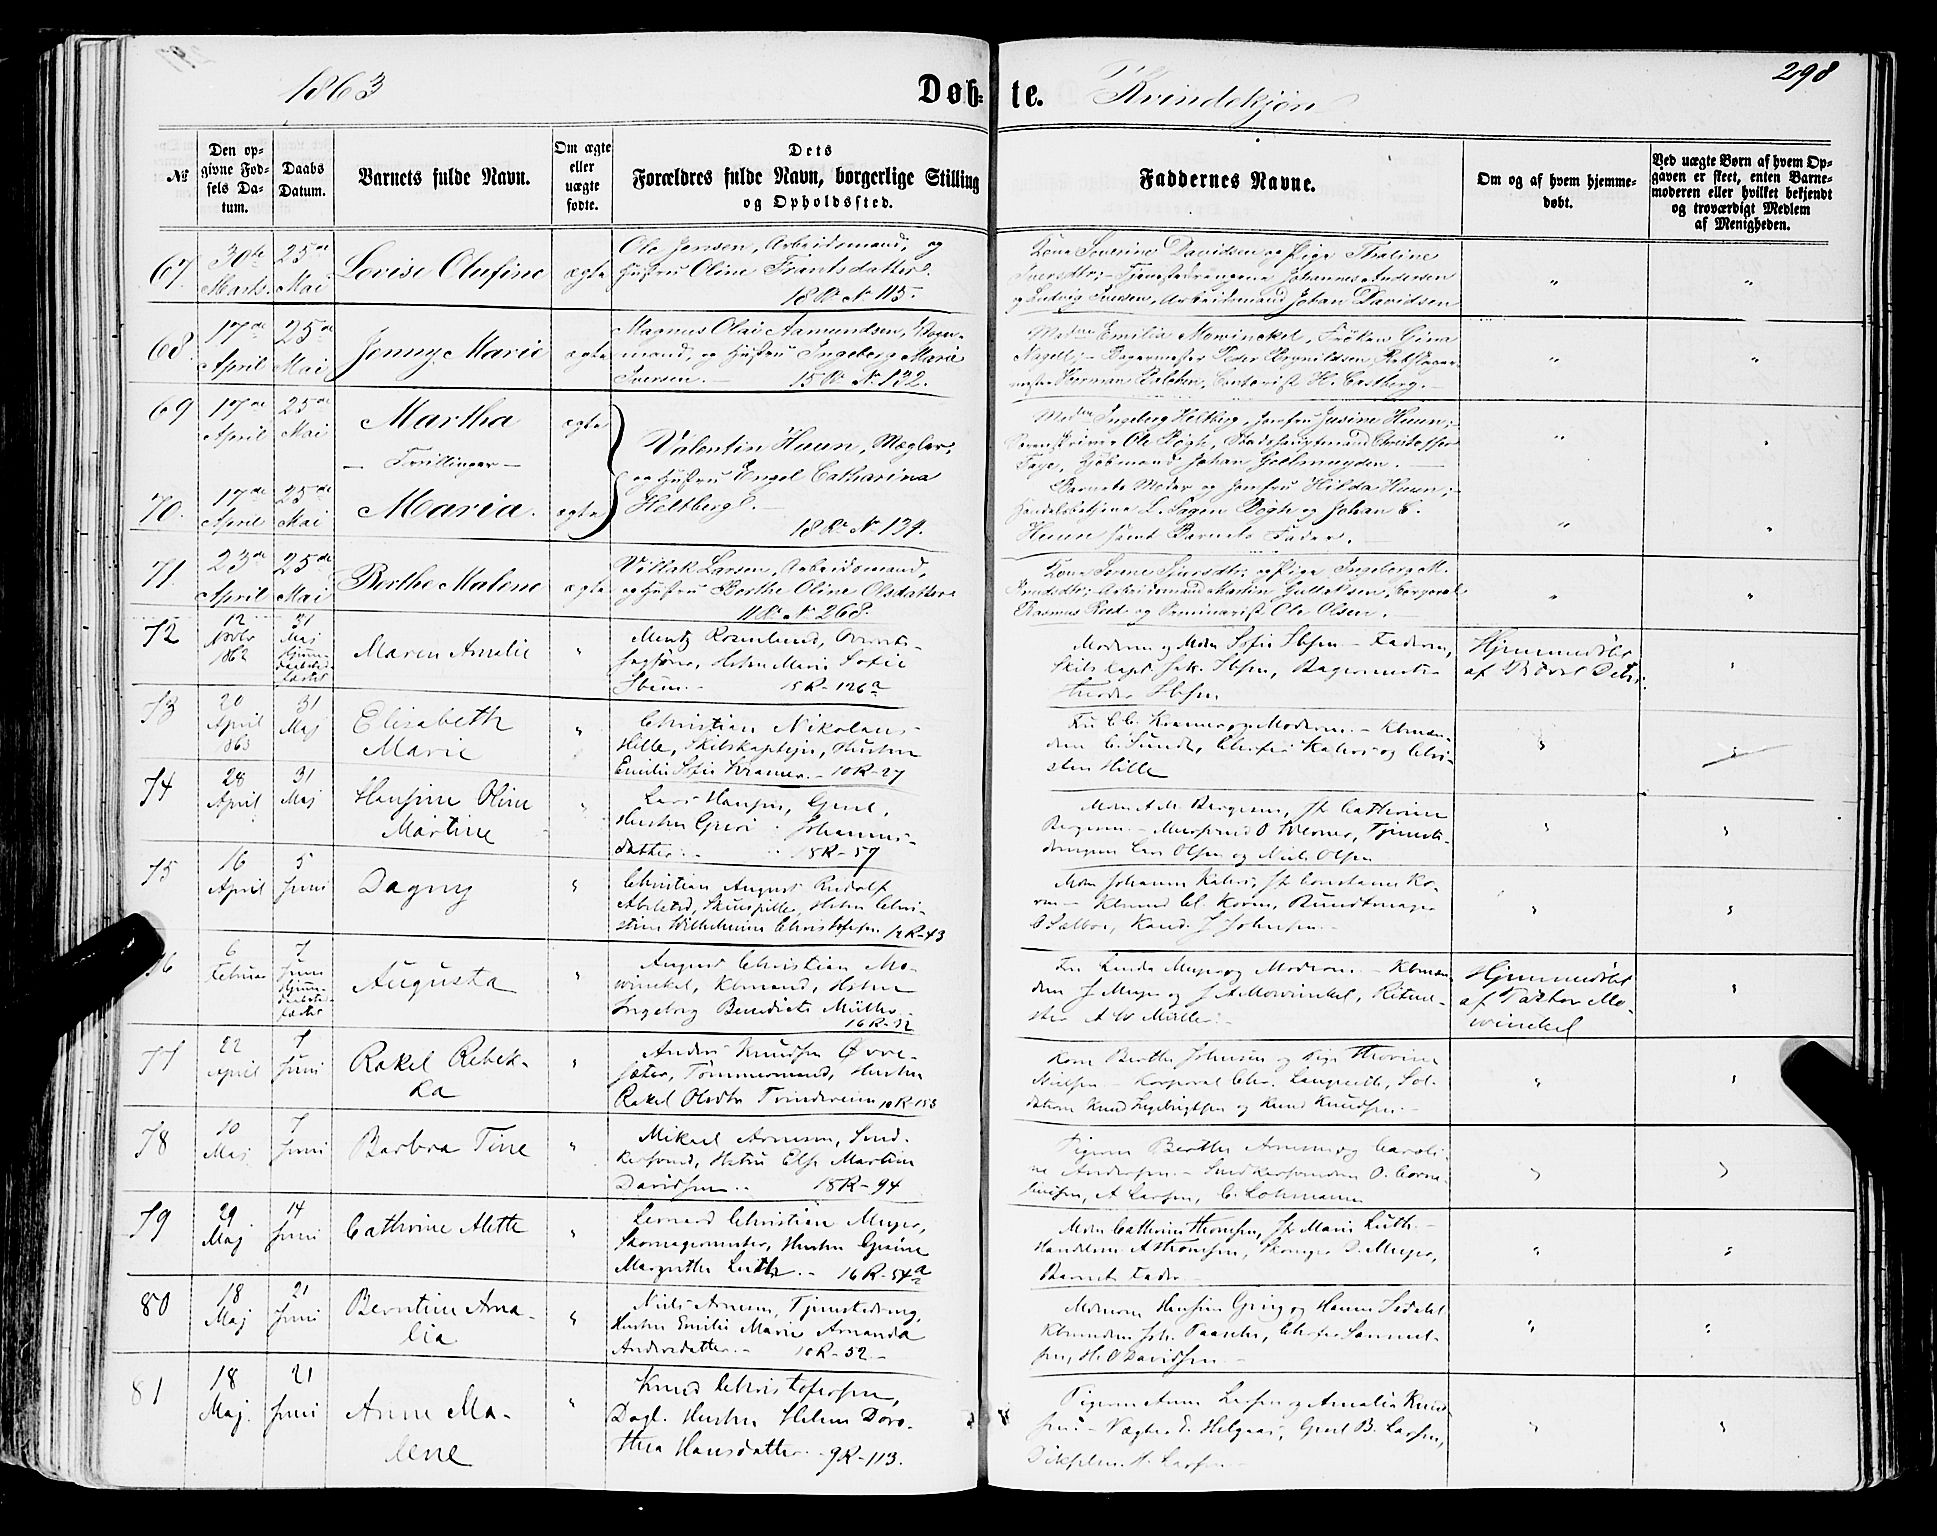 1863
Døb-te.
Kvindekjøn
298
No
Den op-
givne Fød-
sels Da-
tum.
Daabs
Datum.
Barnets fulde Navn.
Om ægte
eller
uægte
fødte.
Dets
Forældres fulde Navn, borgerlige Stilling
og Opholdssted.
Faddernes Navne.
Om og af hvem hjemme-
døbt.
Ved uægte Børn af hvem Op-
gaven er skeet, enten Barne-
moderen eller hvilket bekjendt
og troværdigt Medlem
af Menigheden.
67.
30te
Marts.
25de
Mai
Lovise Olufine
ægte
Ole Jensen, Arbeidsmand, og
Hustru Oline Frantsdatter.
18 R. No 115.
Kone Severine Davidsen og Pige Thaline
Iversdtr; - Tjenestedrengene Johannes Andersen
og Ludvig Iversen, Arbeidsmand Johan Davidsen
68.
17de
April
25de
Mai
Jenny Marie
ægte
Magnus Olai Aamundsen,
mand, og Hustru Ingeborg Marie
Iversen. 15 R. No 132.
Madme Emilie Mowinckel, Frøken Gina
Nagell; - Bagermester Peder Brynildsen,
Herman Balchen, Contorist H. Castberg.
69
17de
April
25de
Mai
Martha
ægte
- Tvillinger -
Valentin Huun, Mægler,
og Hustru Engel Catharina
Heltberg.
18 R. No 134.
Madme Ingeborg Heltberg, Jomfru Husine Huun;
Ole Bøgh, Stadshauptmand Christopher
Faye, Kjøbmand Johan Geelmuyden.
70.
17de
April
25de
Mai
Maria.
ægte
Barnets Moder og Jomfru Hilda Huun;
L. Sagen Bøgh og Johan E.
Huun samt Barnets Fader.
71.
23de
April
25de
Mai
Berthe Malene
ægte
Larsen, Arbeidsmand,
og Hustru Berthe Oline Olsdatter
11 R. No 268.
Kone Iversdtr; og Pige Ingeborg M.
Knudsdtr; Arbeidsmand Martin Corporal
Rasmus og Seminarist Ole Olsen.
72
12
Novbr
1862
31
Maj
Maren Amelie
"
Mentz Rosenlund,
Hustru Maren Sofie
Ibsen. 15 R - 126 a
Moderen og Mdm Sofie Ibsen - Faderen,
Skibskapt Jak. Ibsen, Bagermester
Theodor Ibsen
Hjemmedøbt
af
73
20
April
1863
31
Maj
Elisabeth
Marie
"
Christian Nikolaus
Hille, Skibskaptejn, Hustru
Emilie Sofie Kramer. - 10 R - 27
Fru C. C. Kramer og Moderen - Kbmæn-
dene C. Sundt, Christian Kahrs og Chri-
sten Hille
74
28
April
31
Maj
Hansine Oline
Martine
"
Lars Hansen,
Hustru Guri Johannes-
datter. 18 R - 57
Mdm A M Børgesen, Jf Cathrine
Børgesen - Mursvend O Werner, Tjeneste-
drengene Lars Olsen og Niels Olsen
75
16
April
5
Juni
Dagny
"
Christian August Rudolf
Abelsted, Skuespiller, Hustru Chri-
stine Wilhelmine Christofersen 12 R - 43
Mdm Johanne Kahrs, Jf Constance Ko-
ren - Kbmand Cl. Koren, Buntmager
O Sælboe, Kand. J Johnsen
76
6
Februar
7
Juni
Augusta
"
August Christian Mo-
winckel, Kbmand, Hustru
Ingeborg Benedicte Müller.
16 R - 12
Fru Linda Meyer og Moderen. - Kbmæn-
dene J Meyer og J A Mowinckel, Ritme-
ster A W Müller.
Hjemmedøbt
af Pastor Mo-
winckel
77
22
April
7
Juni
Rakel Rebek-
ka
"
Anders Knudsen Øvre-
sæter, Tømmermand, Hustru
Rakel Olsdtr Tvinderein 10 R - 153
Kone Berthe Johnsen og Pige Thorine
Nielsen - Korporal Chr. Langevith, Sol-
daterne Knud Ingebrigtsen og Knud Knudsen.
78
10
Maj
7
Juni
Barbra Tine
"
Mikael Arnesen, Sned-
kersvend, Hustru Else Martine
Davidsen. 18 R - 94
Pigerne Berthe Arnesen og Caroli-
ne Andersen - Snedkersvendene O. Corne-
liusen, A Larsen, C. Lohmann
79
29
Maj
14
Juni
Cathrine Alette
"
Lernard Christian Meyer,
Skomagermester, Hustru Gesine
Margrethe Luth. - 16 R - 54 a
Mdm Cathrine Thomsen, Jf Marie Luth. -
A Thomsen, Skomager D. Meyer,
Barnets Fader
80
18
Maj
21
Juni
Berntine Ama-
lia
"
Niels Arnesen, Tjenestedreng,
Hustru Emilie Marie Amanda
Andersdatter. - 10 R - 52 -
Hansine Grieg og Hanne Sedahl
Kbmændene Joh. Paasche, Christen Samuel-
sen, H. O Davidsen.
81
18
Maj.
21
Juni
Anne Ma-
lene
"
Knud Christofersen,
Dagl. Hustru Helene Doro-
thea Hansdatter. - 9 R - 113.
Pigerne Anne Larsen og Amalia Knud-
sen - Vægter E. Helgaas, B. Larsen,
A. Larsen